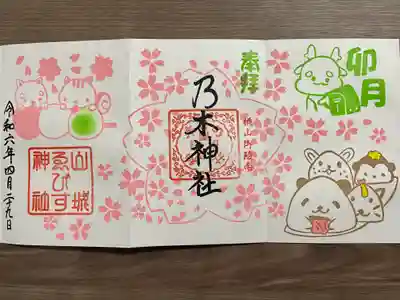 卯月
奉拝
桃山御陵舎
乃木神社
山城
ゑびす
神社
令和六年四月二十九日